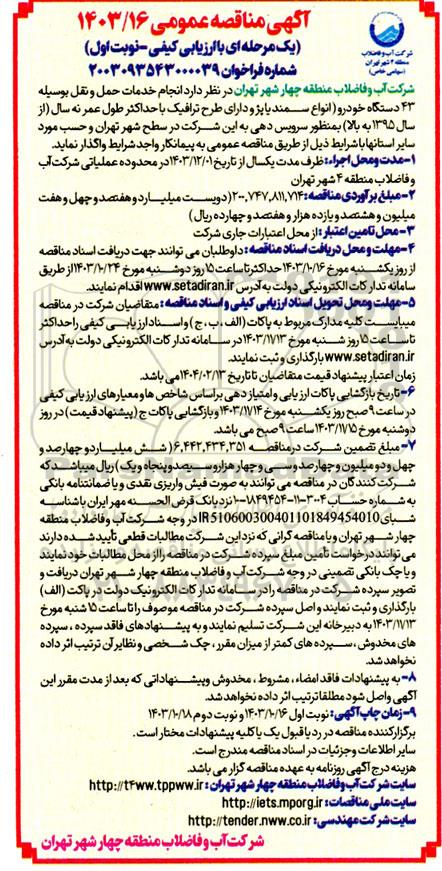 آگهی مناقصه عمومی ۱۴۰۳/۱۶
(یک مرحله ای با ارزیابی کیفی -نوبت اول)
شماره فراخوان ۲۰۰۳۰۹۳۵۴۳۰۰۰۰۳۹
شرکت آب و فاضلاب
منطقه ۴ شهر تهران
(سهامی خاص)
شرکت آب و فاضلاب منطقه چهار شهر تهران در نظر دارد انجام خدمات حمل و نقل بوسیله
۴۳ دستگاه خودرو (انواع سمند یا پژو دارای طرح ترافیک با حداکثر طول عمر نه سال (از
سال ۱۳۹۵ به بالا) بمنظور سرویس دهی به این شرکت در سطح شهر تهران و حسب مورد
سایر استانها با شرایط ذیل از طریق مناقصه عمومی به پیمانکار واجد شرایط واگذار نماید.
۱-مدت و محل اجراء: ظرف مدت یکسال از تاریخ ۱۴۰۳/۱۲/۰۱ در محدوده عملیاتی شرکت آب
و فاضلاب منطقه ۴ شهر تهران
۲-مبلغ برآوردی مناقصه: ۲۰۰,۷۴۷,۸۱۱,۷۱۴ (دویست میلیارد و هفتصد و چهل و هفت
میلیون و هشتصد و یازده هزار و هفتصد و چهارده ریال)
۳-محل تامین اعتبار: از محل اعتبارات جاری شرکت
۴-مهلت و محل دریافت اسناد مناقصه: داوطلبان می توانند جهت دریافت اسناد مناقصه
از روز یکشنبه مورخ ۱۴۰۳/۱۰/۱۶ حداکثر تا ساعت ۱۵ روز دوشنبه مورخ ۱۴۰۳/۱۰/۲۴ از طریق
سامانه تدارکات الکترونیکی دولت به آدرس www.setadiran.ir اقدام نمایند.
۵-مهلت و محل تحویل اسناد ارزیابی کیفی و اسناد مناقصه: متقاضیان شرکت در مناقصه
میبایست کلیه مدارک مربوط به پاکات (الف، ب، ج) و اسناد ارزیابی کیفی را حداکثر
تا ساعت ۱۵ روز شنبه مورخ ۱۴۰۳/۱۱/۱۳ در سامانه تدارکات الکترونیکی دولت به آدرس
www.setadiran.ir بارگذاری و ثبت نمایند.
زمان اعتبار پیشنهاد قیمت متقاضیان تا تاریخ ۱۴۰۴/۰۲/۱۳ می باشد.
۶-تاریخ بازگشایی پاکات ارزیابی و امتیاز دهی بر اساس شاخص ها و معیارهای ارزیابی کیفی
در ساعت ۹ صبح روز یکشنبه مورخ ۱۴۰۳/۱۱/۱۴ و بازگشایی پاکات ج (پیشنهاد قیمت) در روز
دوشنبه مورخ ۱۴۰۳/۱۱/۱۵ ساعت ۹ صبح می باشد.
۷-مبلغ تضمین شرکت در مناقصه ۶,۴۴۲,۴۳۴,۳۵۱ (شش میلیارد و چهارصد و
چهل و دو میلیون و چهارصد و سی و چهار هزار و سیصد و پنجاه و یک) ریال میباشد که
شرکت کنندگان در مناقصه می توانند به صورت فیش واریزی نقدی و یا ضمانتنامه بانکی
به شماره حساب ۳۰۰۴-۱۱-۱۸۴۹۴۵۴-۱ نزد بانک قرض الحسنه مهر ایران با شناسه
شبای IR510600300401101849454010 در وجه شرکت آب و فاضلاب منطقه
چهار شهر تهران و یا مناقصه گرانی که نزد این شرکت مطالبات قطعی تأیید شده دارند
می توانند درخواست تأمین مبلغ سپرده شرکت در مناقصه را از محل مطالبات خود نمایند
و یا چک بانکی تضمینی در وجه شرکت آب و فاضلاب منطقه چهار شهر تهران دریافت و
تصویر سپرده شرکت در مناقصه را در سامانه تدارکات الکترونیک دولت در پاکت (الف)
بارگذاری و ثبت نمایند و اصل سپرده شرکت در مناقصه موصوف را تا ساعت ۱۵ شنبه مورخ
۱۴۰۳/۱۱/۱۳ به دبیرخانه این شرکت تسلیم نمایند و به پیشنهادهای فاقد سپرده، سپرده
های مخدوش، سپرده های کمتر از میزان مقرر، چک شخصی و نظایر آن ترتیب اثر داده
نخواهد شد.
۸-به پیشنهادات فاقد امضاء، مشروط، مخدوش و پیشنهاداتی که بعد از مدت مقرر این
آگهی واصل شود مطلقا ترتیب اثر داده نخواهد شد.
۹-زمان چاپ آگهی: نوبت اول ۱۴۰۳/۱۰/۱۶ و نوبت دوم ۱۴۰۳/۱۰/۱۸
برگزار کننده مناقصه در رد یا قبول یک یا کلیه پیشنهادات مختار است.
سایر اطلاعات و جزئیات در اسناد مناقصه مندرج است.
هزینه درج آگهی روزنامه به عهده مناقصه گزار می باشد.
سایت شرکت آب و فاضلاب منطقه چهار شهر تهران: http://t4ww.tppww.ir
سایت ملی مناقصات: http://iets.mporg.ir
سایت شرکت مهندسی: http://tender.nww.co.ir
شرکت آب و فاضلاب منطقه چهار شهر تهران